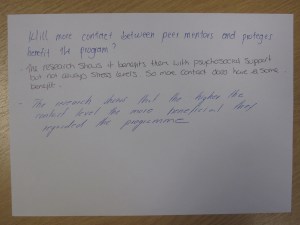 Will more contact between peer mentors and proteges
benefit the program?
- The research shows it benefits them with psychosocial support
but not always stress levels. So more contact does have some
benefit.
- The research shows that the higher the
contact level the more beneficial they
regarded the programme